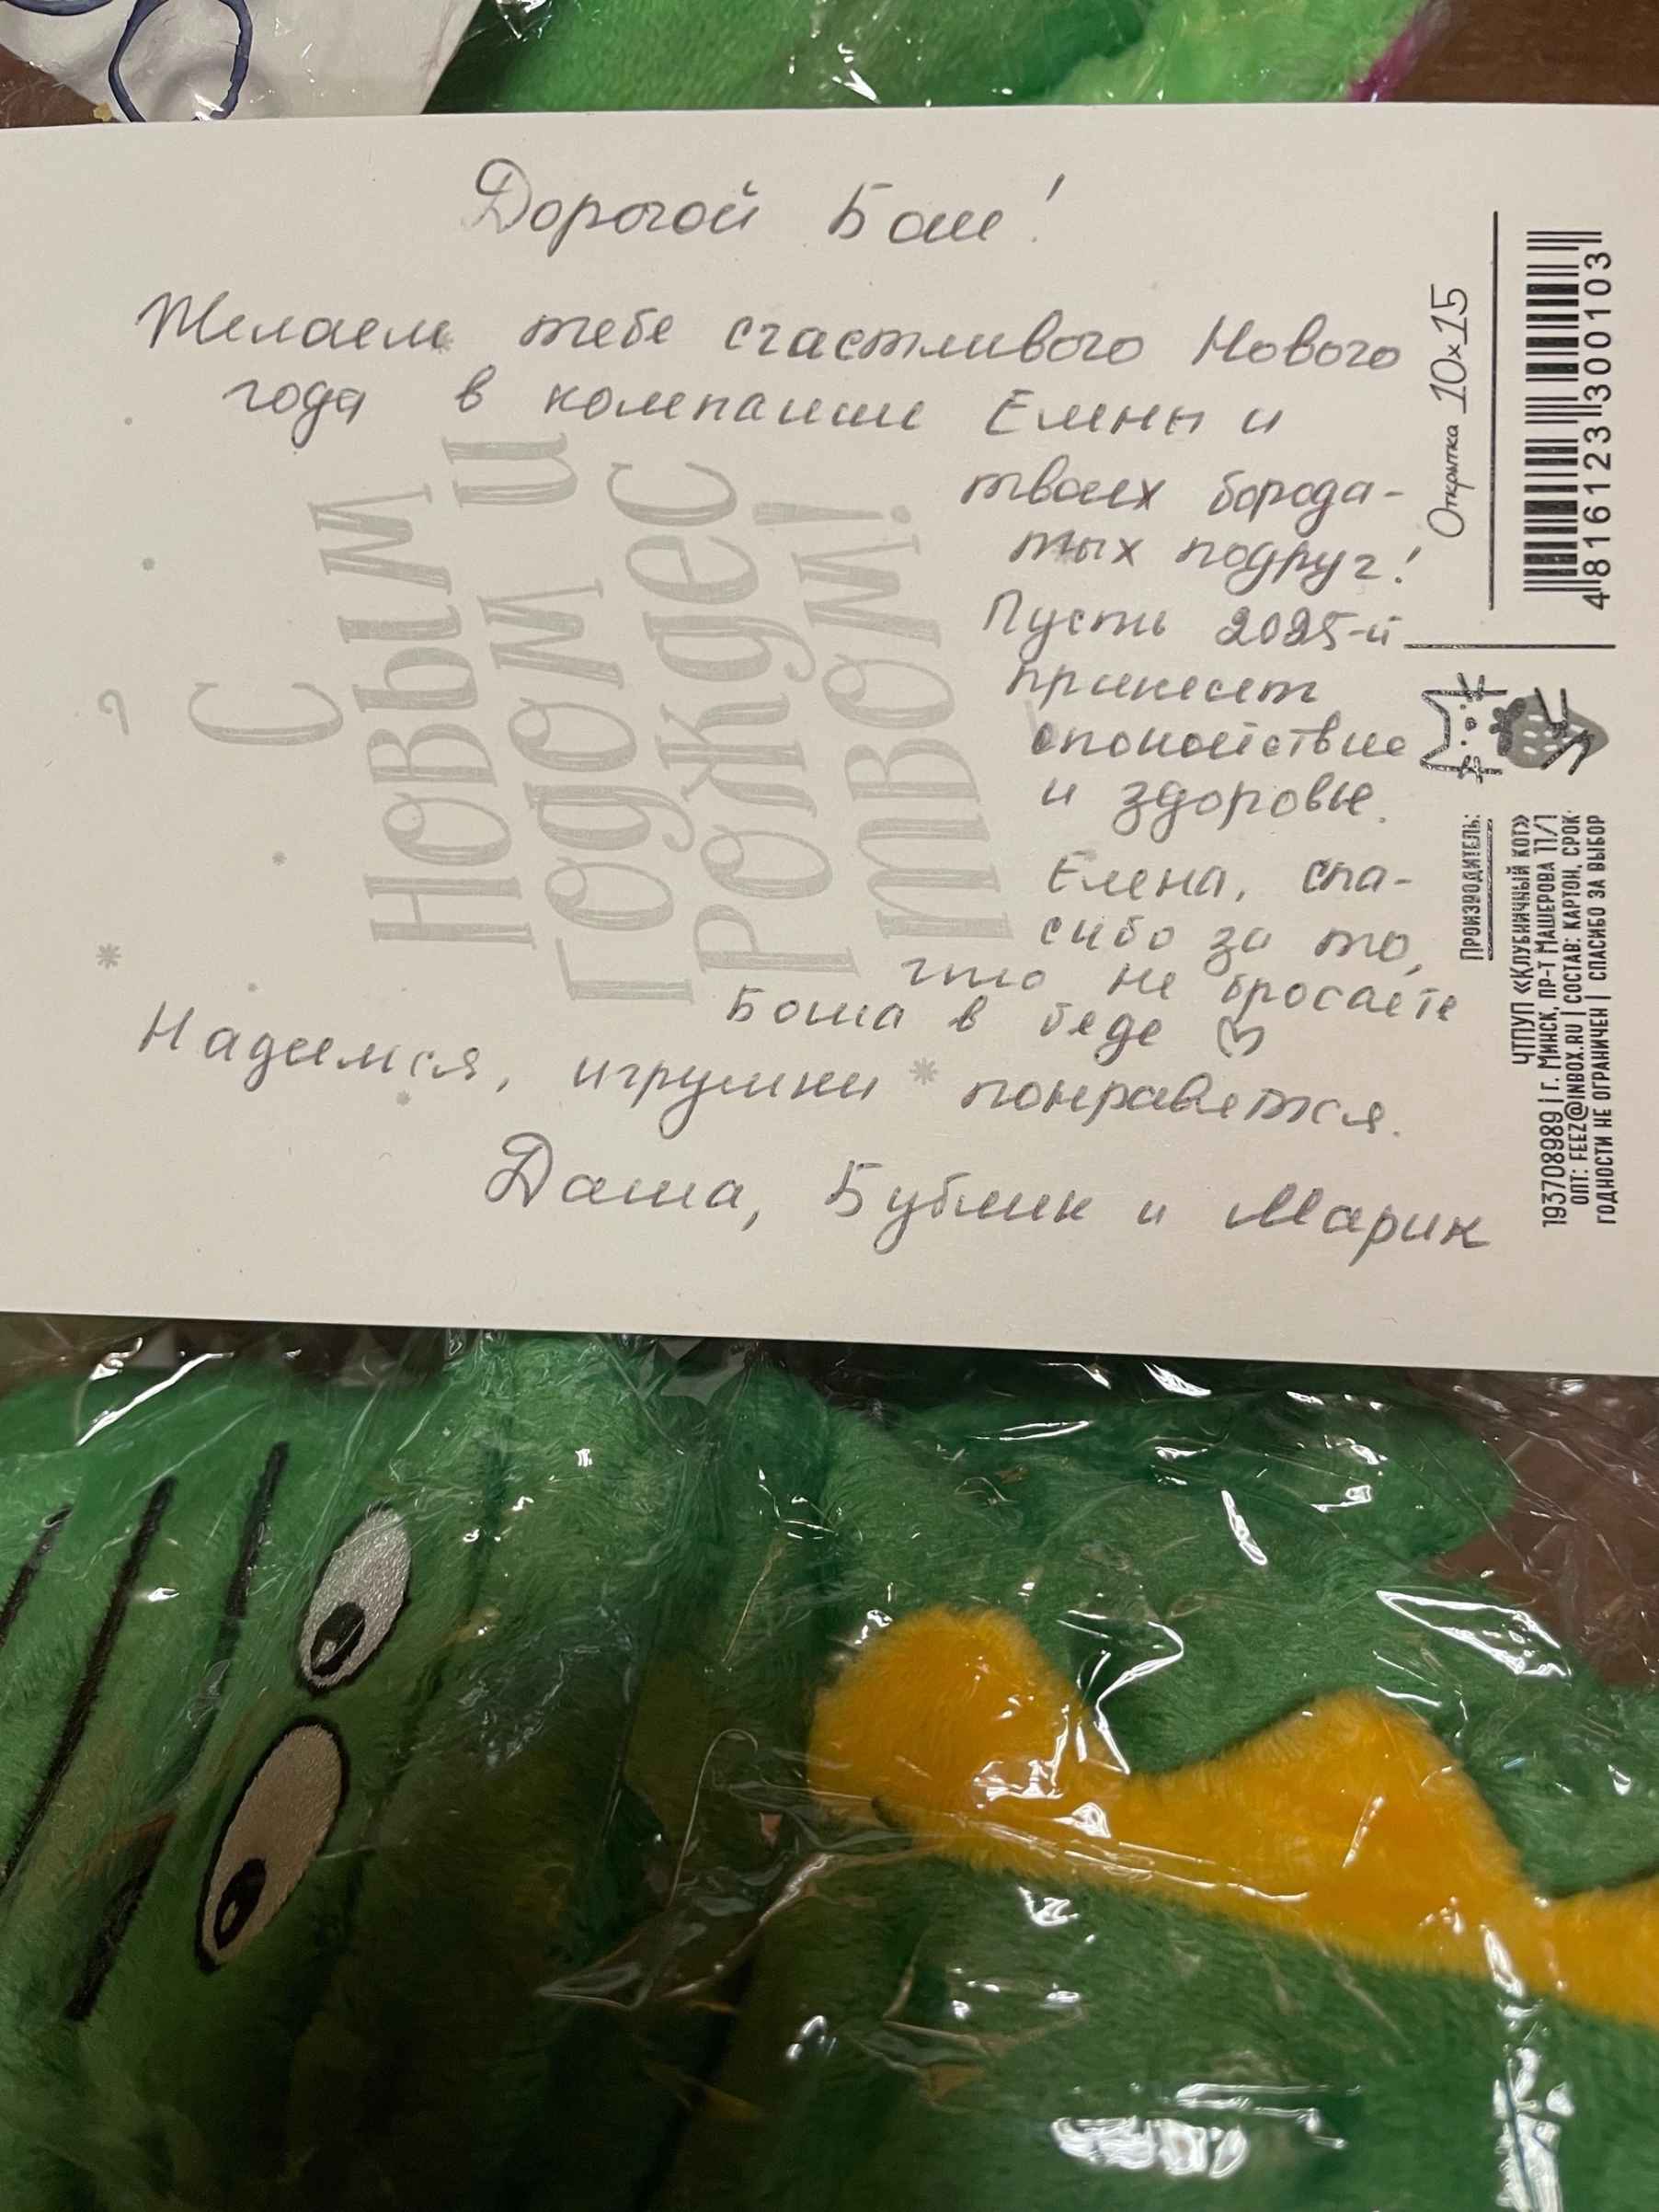 Дорогой Баш!
Желаем тебе счастливого Нового
года в компании Елены и
твоих борода-
тых подруг!
Пусть 2025-й
принесет
спокойствие
и здоровье.
Елена, спа-
сибо за то,
что не бросаете
Баша в беде ♡
Надеемся, игрушки понравятся.
Даша, Бублик и Марик
С
Новым
Годом и
Рождес
твом!
Открытка 10x15
4 816123 300103
Производитель:
ЧТПУП «Клубничный кот»
193708989 | г. Минск, пр-т Машерова 11/1
опт: feez@inbox.ru | Состав: картон, срок
годности не ограничен | Спасибо за выбор